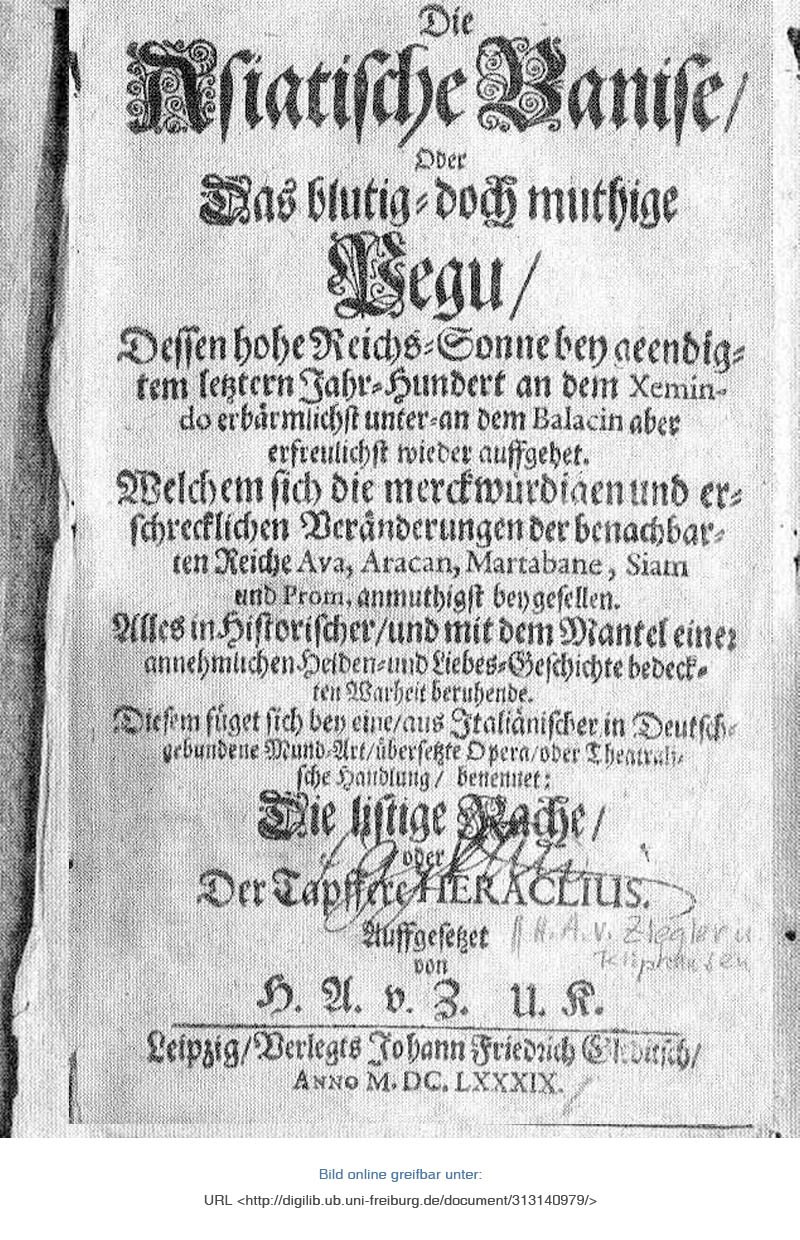 Die
Asiatische Banise/
Oder
Das blutig-doch muthige
Pegu/
Dessen hohe Reichs-Sonne bey geendig-
tem letztern Jahr-Hundert an dem Xemin-
do erbärmlichst unter-an dem Balacin aber
erfreulichst wieder auffgehet.
Welchem sich die merckwürdigen und er-
schrecklichen Veränderungen der benachbar-
ten Reiche Ava, Aracan, Martabane, Siam
und Prom, anmuthigst beygesellen.
Alles in Historischer/und mit dem Mantel einer
annehmlichen Helden-und Liebes-Geschichte bedeck-
ten Warheit beruhende.
Diesem füget sich bey eine/aus Italiänischer in Deutsch-
gebundene Mund-Art/übersetzte Opera/oder Theatrali-
sche Handlung/ benennet:
Die listige Rache/
oder
Der Tapffere HERACLIUS.
Auffgesetzet
H. A. v. Ziegler u
von
Kliphausen
H. A. v. Z. U. K.
Leipzig/Verlegts Johann Friedrich Gleditsch/
ANNO M. DC. LXXXIX.
Bild online greifbar unter:
URL <http://digilib.ub.uni-freiburg.de/document/313140979/>